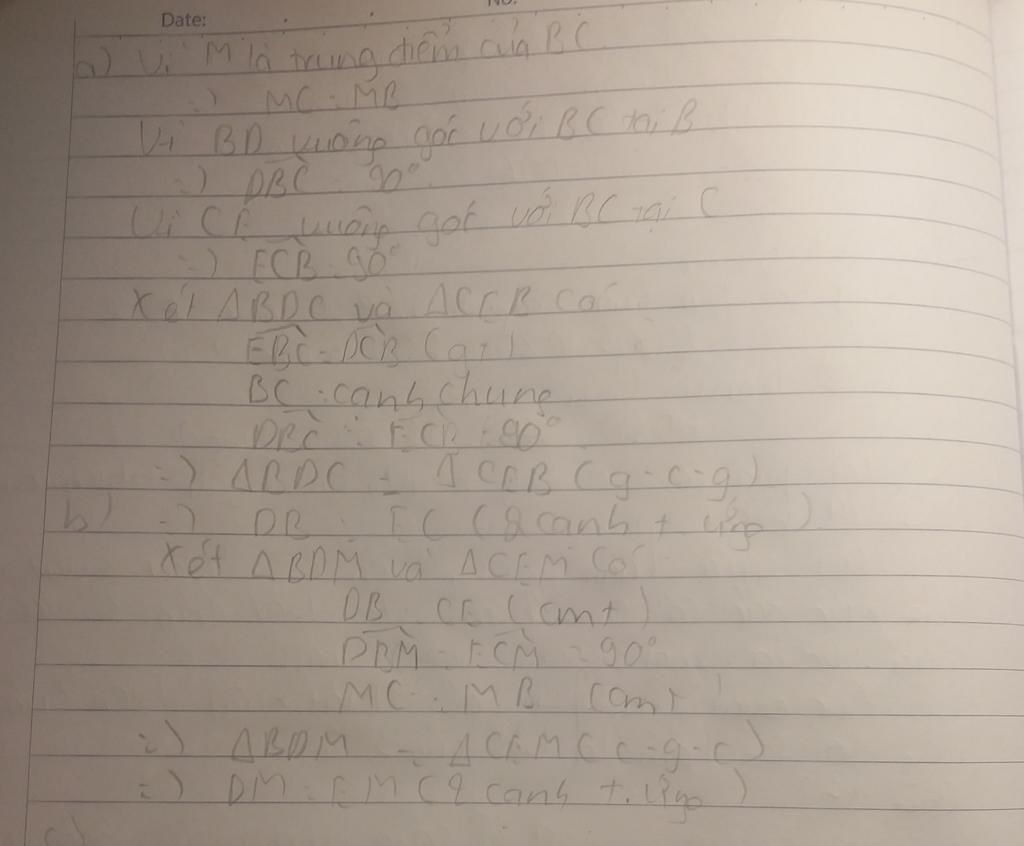 No.
Date:
a) Vì M là trung điểm của BC
=) MC = MB
Vì BD vuông góc với BC tại B
=) DBC = 90°
Vì CE vuông góc với BC tại C
=) ECB = 90°
Xét ΔBDC và ΔCEB có
EBC = DCB (gt)
BC : cạnh chung
DBC = ECB = 90°
=) ΔBDC = ΔCEB (g-c-g)
b) =) DB = EC (2 cạnh t ứng)
Xét ΔBDM và ΔCEM có
DB = CE (cmt)
DBM = ECM = 90°
MC = MB (cmt)
=) ΔBDM = ΔCEM (c-g-c)
=) DM = EM (2 cạnh t. ứng)
c)